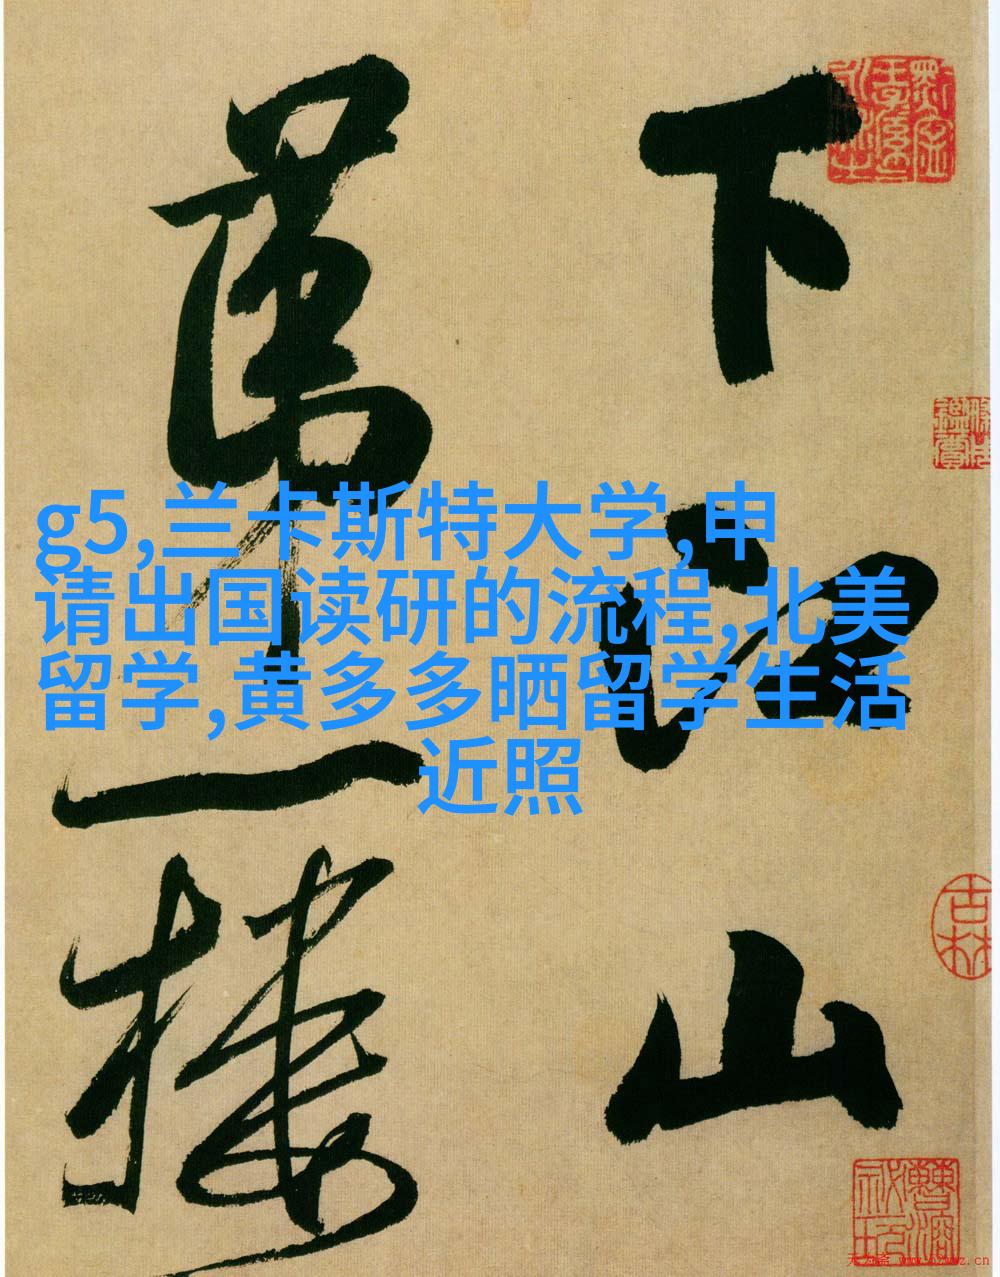 下江山
第一樓
g5,兰卡斯特大学,申
请出国读研的流程,北美
留学,黄多多晒留学生活
近照